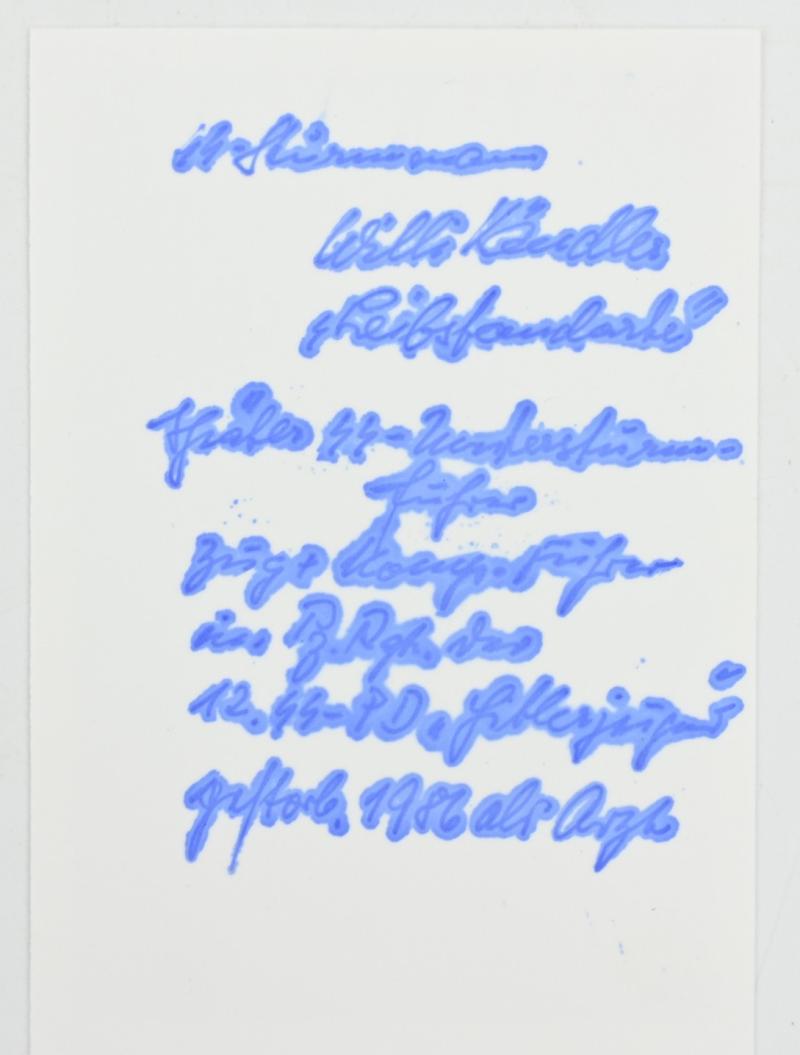 SS-Sturmmann
Willi Kändler
"Leibstandarte"
Später SS-Untersturm-
führer
Zugs Komp.führer
im Pz.Rgt. der
12. SS-PD „Hitlerjugend"
gestorb. 1986 als Arzt